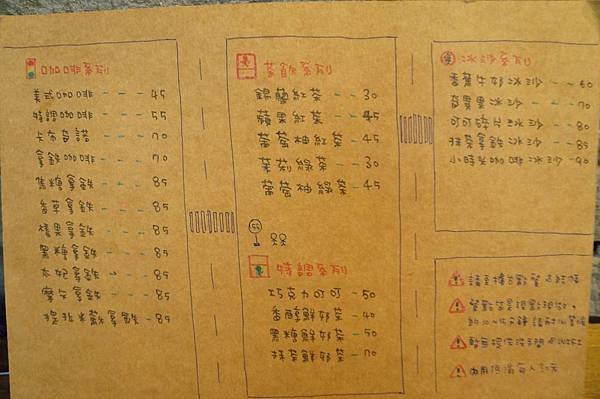 咖啡系列
美式咖啡 - - 45
特調咖啡 - - 55
卡布奇諾 - - 70
拿鐵咖啡 - - 70
焦糖拿鐵 - - 85
香草拿鐵 - - 85
榛果拿鐵 - - 85
黑糖拿鐵 - - 85
拿鐵 - - 85
摩卡拿鐵 - - 85
提拉米蘇拿鐵 - 85
茶飲系列
錫蘭紅茶 - - 30
蘋果紅茶 - - 45
葡萄柚紅茶 - 45
茉莉綠茶 - - 30
葡萄柚綠茶 - 45
特調系列
巧克力可可 - 50
香醇鮮奶茶 - 40
黑糖鮮奶茶 - 50
抹茶鮮奶茶 - 70
冰沙系列
香蕉牛奶冰沙 - - 60
芒果果冰沙 - - 70
可可碎片冰沙 - 80
抹茶拿鐵冰沙 - 85
小時光咖啡冰沙 - 90
請至櫃台點餐及結帳
餐點皆是現點現做,
暫無提供洗手間及WIFI
內用低消每人